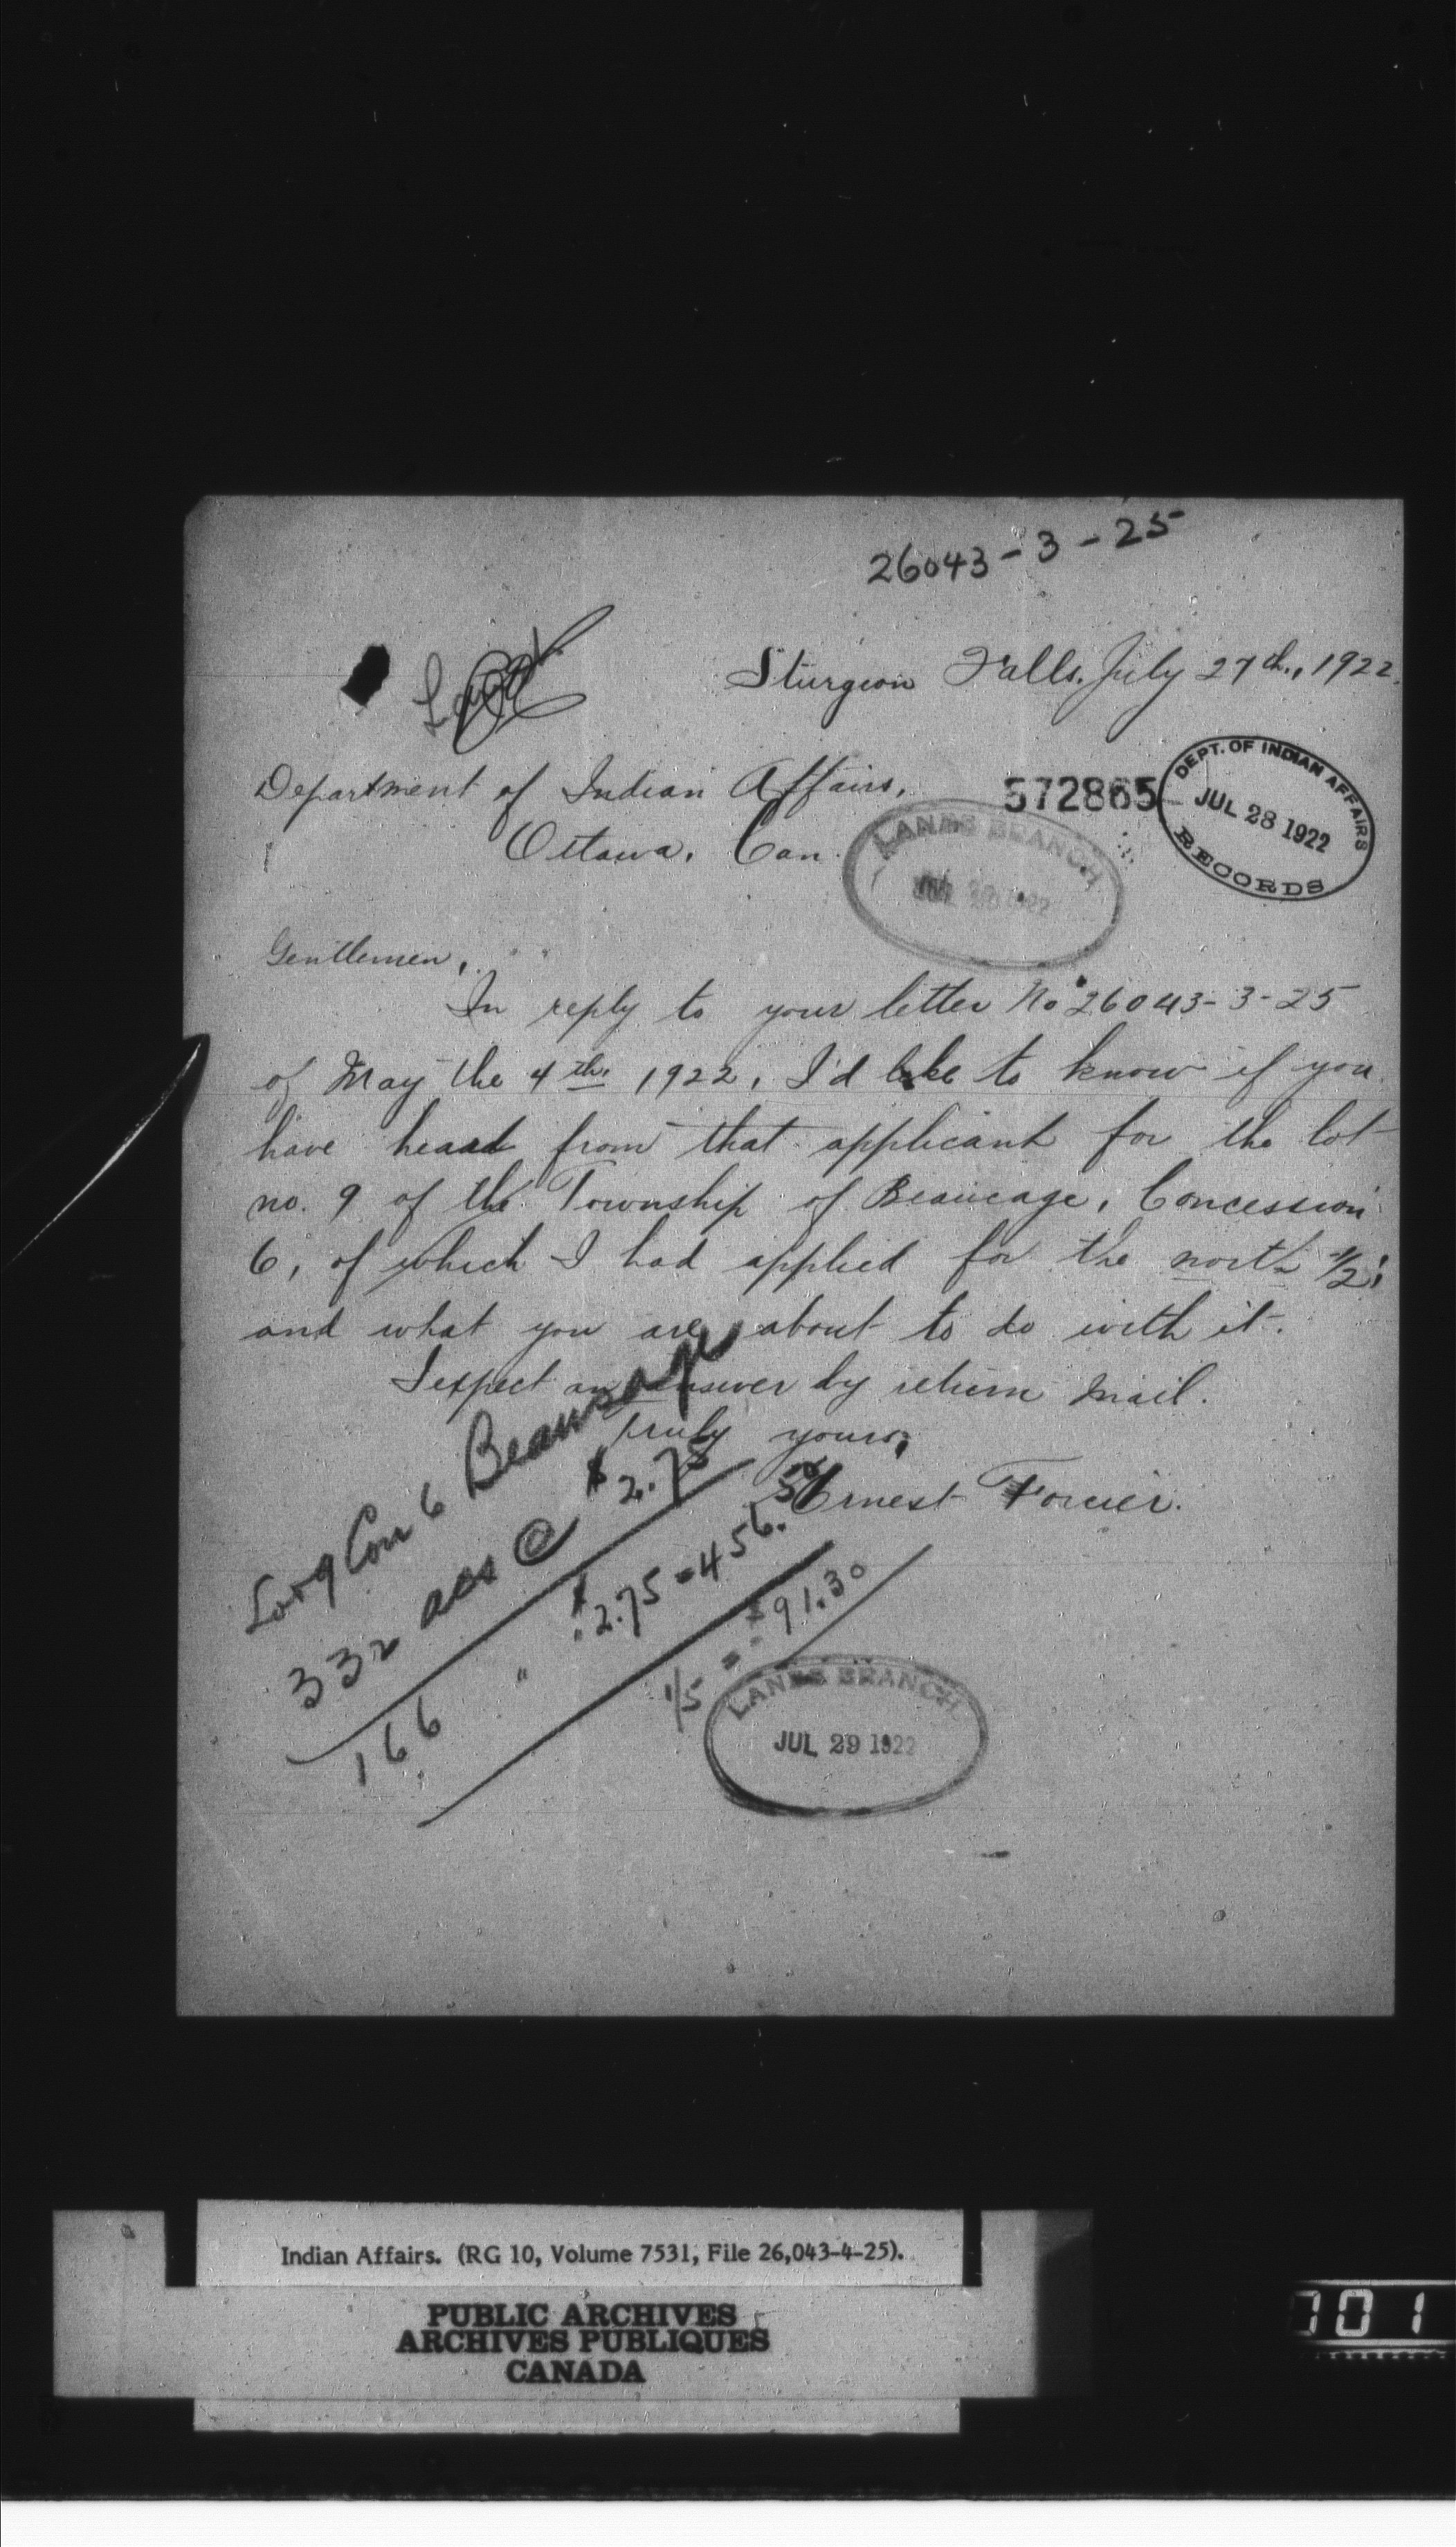 26043-3-25
Sturgeon Falls, July 27th., 1922.
Department of Indian Affairs,
Ottawa, Can.
572865
DEPT. OF INDIAN AFFAIRS
JUL 28 1922
RECORDS
LANDS BRANCH
1922
Gentlemen,
In reply to your letter No 26043-3-25
of May the 4th. 1922, I'd like to know if you
have heard from that applicant for the lot
no. 9 of the Township of Beaucage, Concession
6, of which I had applied for the north 1/2;
and what you are about to do with it.
I expect an answer by return mail.
Truly yours,
Ernest
Lot 9 Con 6 Beaucage
332 acs @ $2.75
166 " $2.75 = 456.50
1/5 = $91.30
LANDS BRANCH
JUL 29 1922
Indian Affairs. (RG 10, Volume 7531, File 26,043-4-25).
PUBLIC ARCHIVES
ARCHIVES PUBLIQUES
CANADA
701